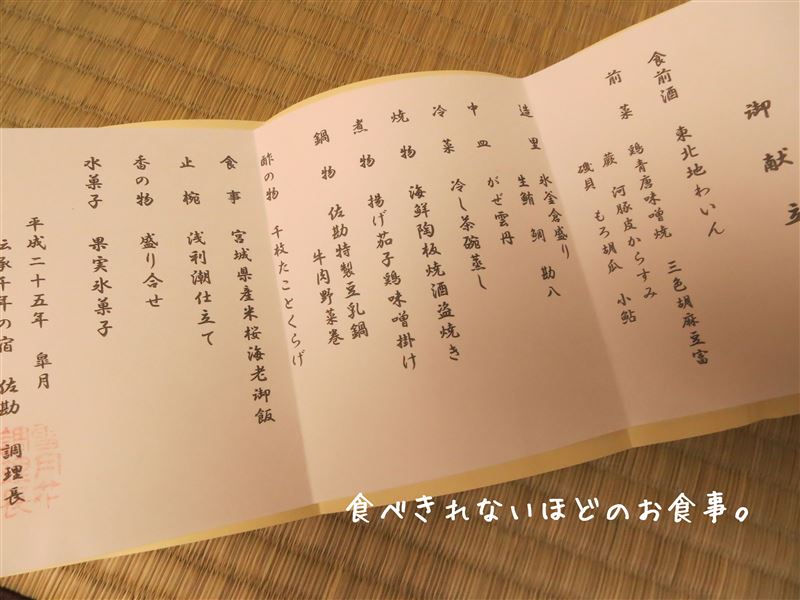 御献立
食前酒 東北地わいん
前菜 鶏青唐味噌焼 三色胡麻豆富
蕨 河豚皮からすみ 小鮎
磯貝 もろ胡瓜
造里 氷釜倉盛り
生鮪 鯛 勘八
中皿 がぜ雲丹
冷菜 冷し茶碗蒸し
焼物 海鮮陶板焼酒盗焼き
煮物 揚げ茄子鶏味噌掛け
鍋物 佐勘特製豆乳鍋
牛肉野菜巻
酢の物 千枚たことくらげ
食事 宮城県産米桜海老御飯
止椀 浅利潮仕立て
香の物 盛り合せ
水菓子 果実氷菓子
平成二十五年 皐月
伝承千年の宿 佐勘 調理長
食べきれないほどのお食事。